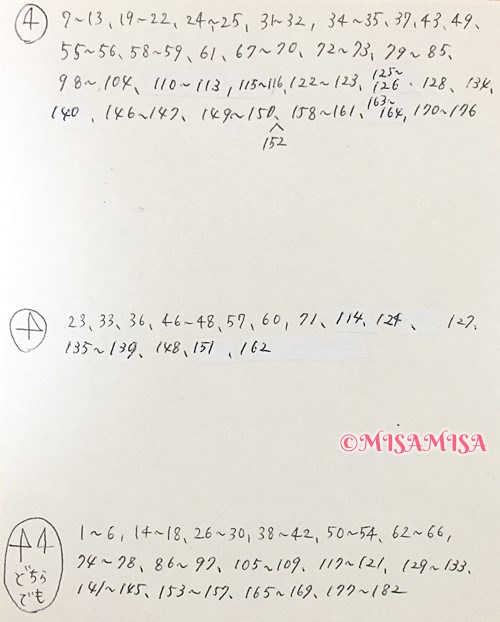 4 7~13、19~22、24~25、31~32、34~35、37、43、49、
55~56、58~59、61、67~70、72~73、79~85、
98~104、110~113、115~116、122~123、125~126、128、134、
140、146~147、149~150、158~161、163~164、170~176
152
23、33、36、46~48、57、60、71、114、124、127、
135~139、148、151、162
©MISAMISA
4 1~6、14~18、26~30、38~42、50~54、62~66、
どちら 74~78、86~97、105~109、117~121、129~133、
でも 141~145、153~157、165~169、177~182